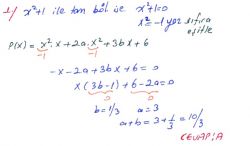 x²+1 ile tam böl ise x²+1=0
x²=-1 yaz sıfıra
eşitle
P(x) = x².x+2a.x²+3bx+6
-1 -1
-x-2a+3bx+6=0
x(3b-1)+6-2a=0
0 0
b=1/3 a=3
a+b=3+1/3=10/3
CEVAP:A